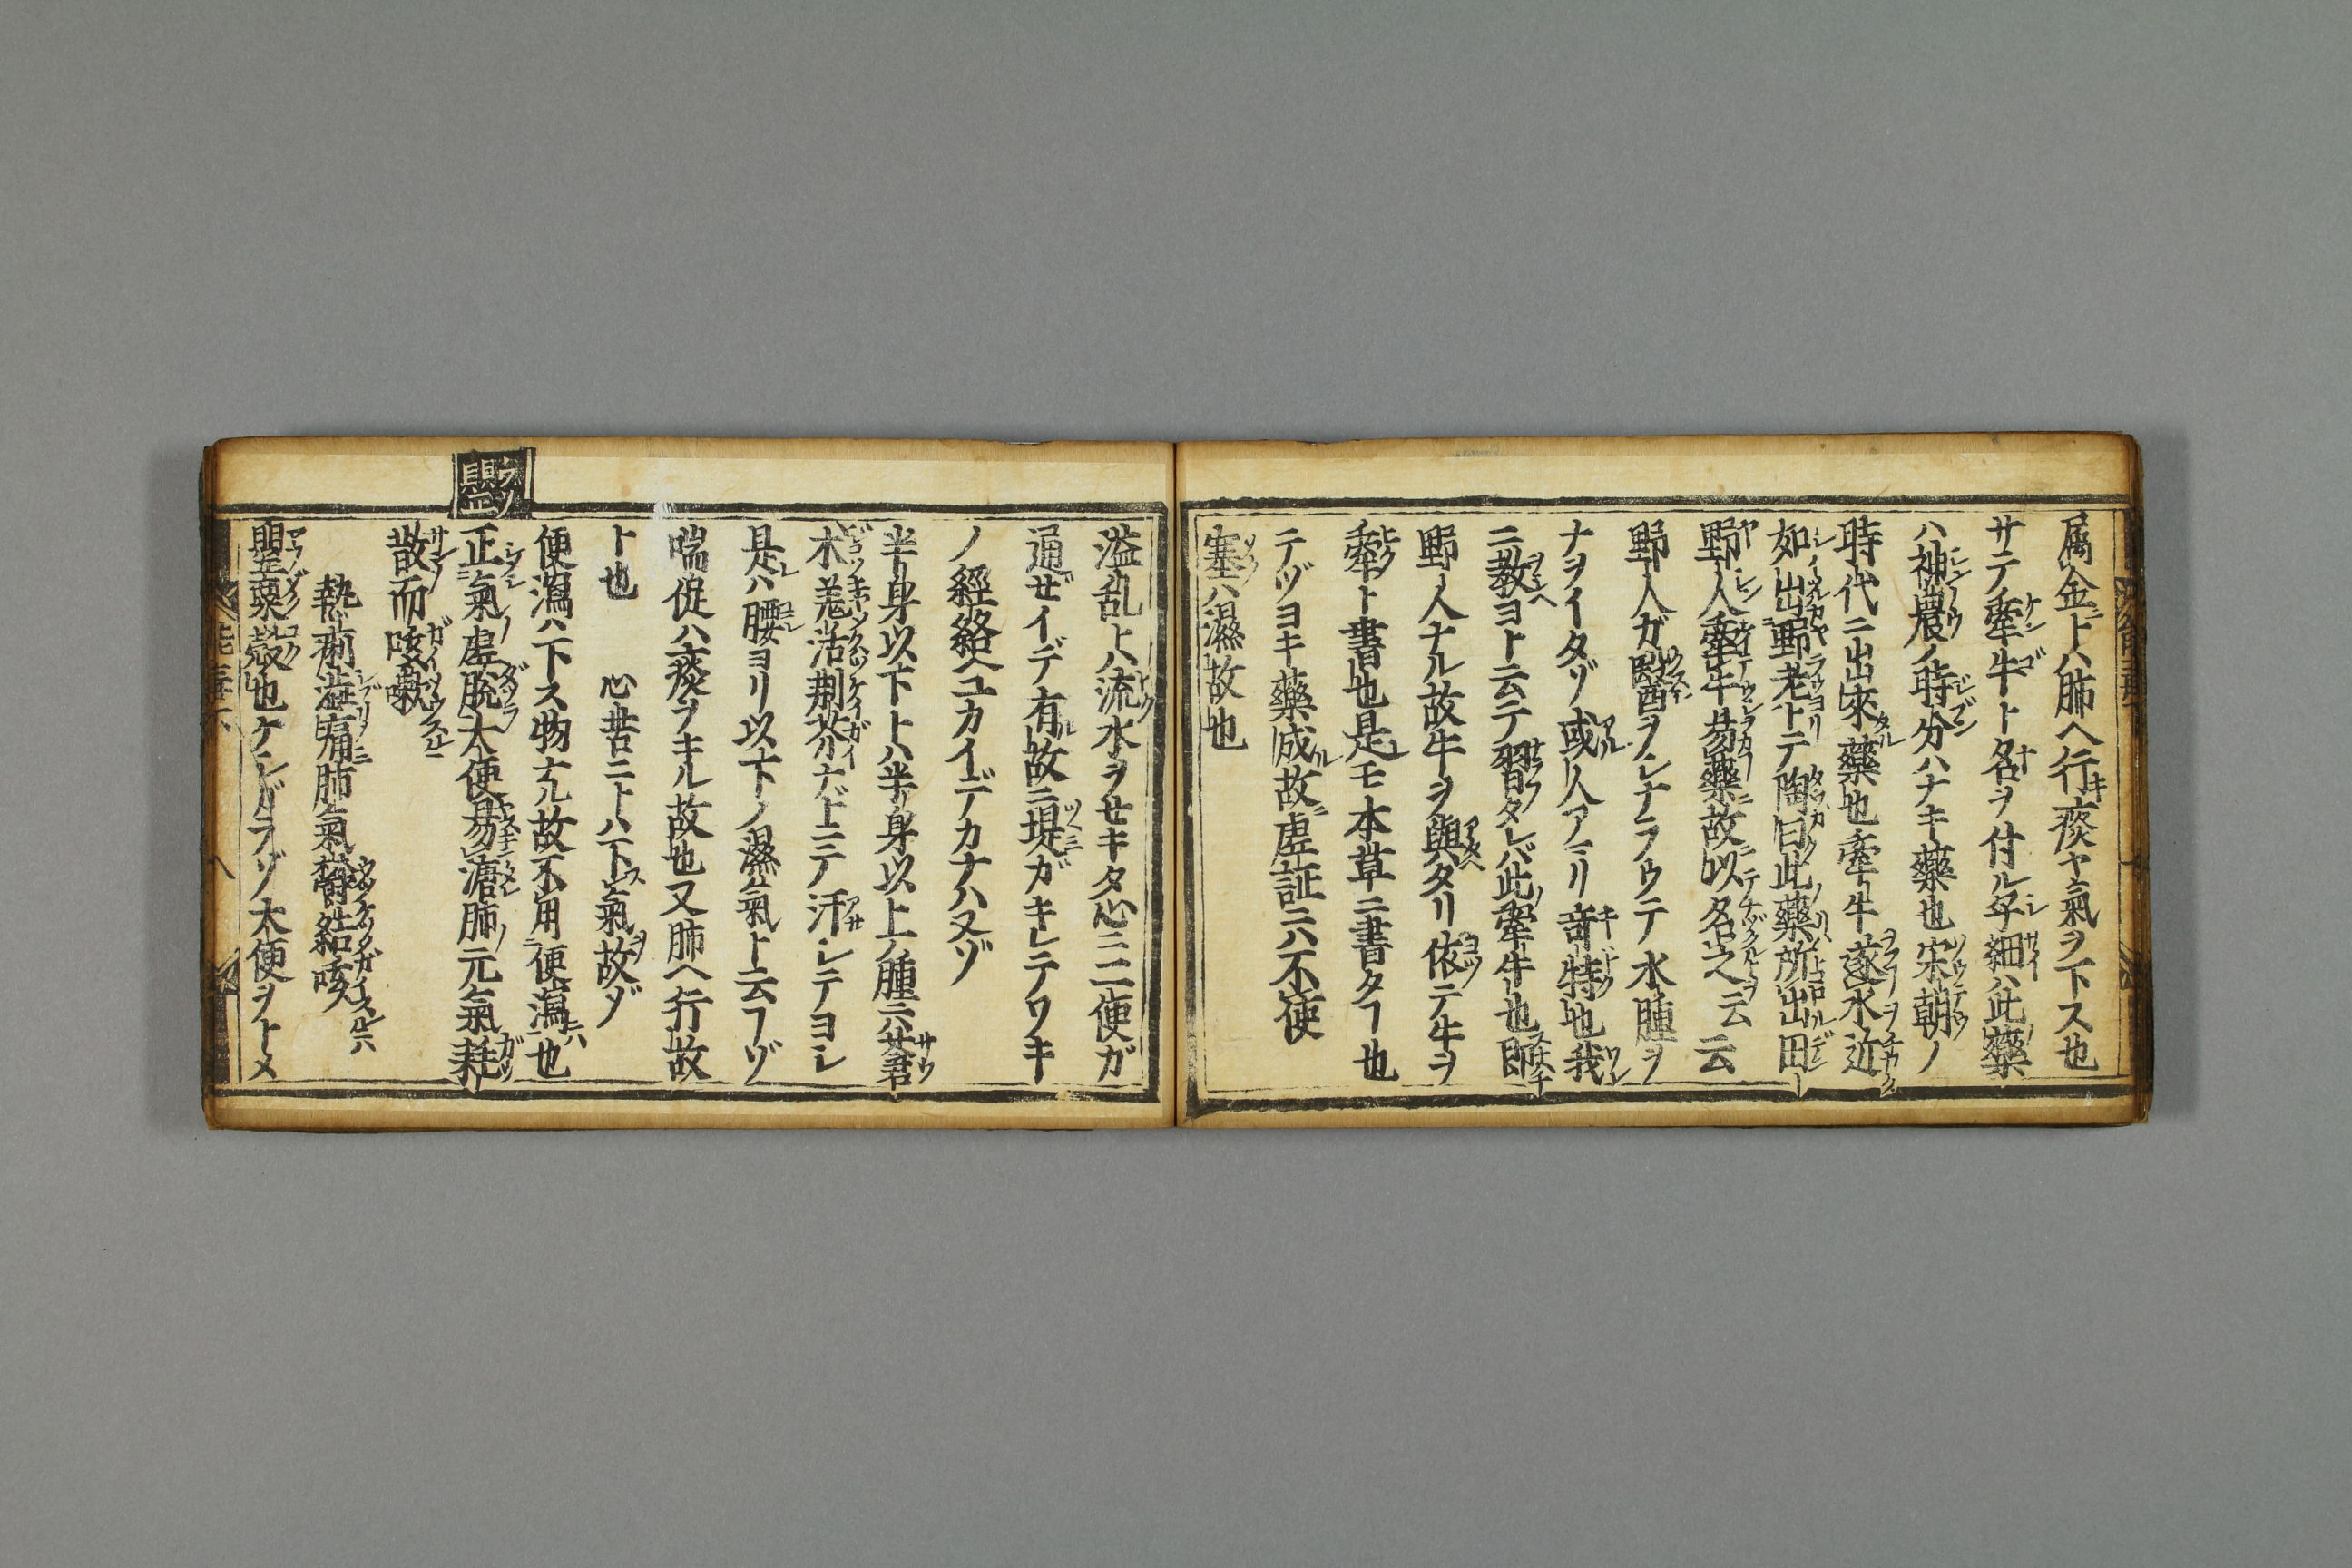 属金ト八肺ヘ行痰ヤ氣ヲ下ス也
サテ牽牛ト名ヲ付ル子細ハ此藥
ハ神農ノ時分ハナキ藥也宋朝ノ
時代ニ出來藥也牽牛逐水近
如出野老トテ陶曰此藥所出田
野人牽牛易藥故以名之云云
野人ガ醫ヲシナラウテ水腫ヲ
ナヲイタゾ或人アリ奇特也我
ニ教ヨト云テ習タレバ此牽牛也即
野人ナル故牛ヲ與タリ依テ牛ヲ
牽ト書也是モ本草ニ書タ丁也
テヅヨキ藥成故虚証ニハ不使
塞ハ濕故也
溢乱トハ流水ヲせキタ心ニ二便ガ
通ぜイデ有故ニ堤ガキレテワキ
ノ經絡ヘユカイデカナハヌゾ
半身以下トハ半身以上ノ腫ニハ
木羗活荆芥ナドニテ汗シテヨシ
是ハ腰ヨリ以下ノ濕氣ト云フゾ
喘促ハ痰ヲキル故也又肺ヘ行故
ト也 心苦ニトハ下氣故ゾ
便瀉ハ下ス物ナル故不用便瀉ニハ也
正氣虚脫大便易溏肺元氣耗
散而咳嗽
熱痢澁痛肺氣欝結咳
罌粟殻也ケシガラゾ大便ヲトメ